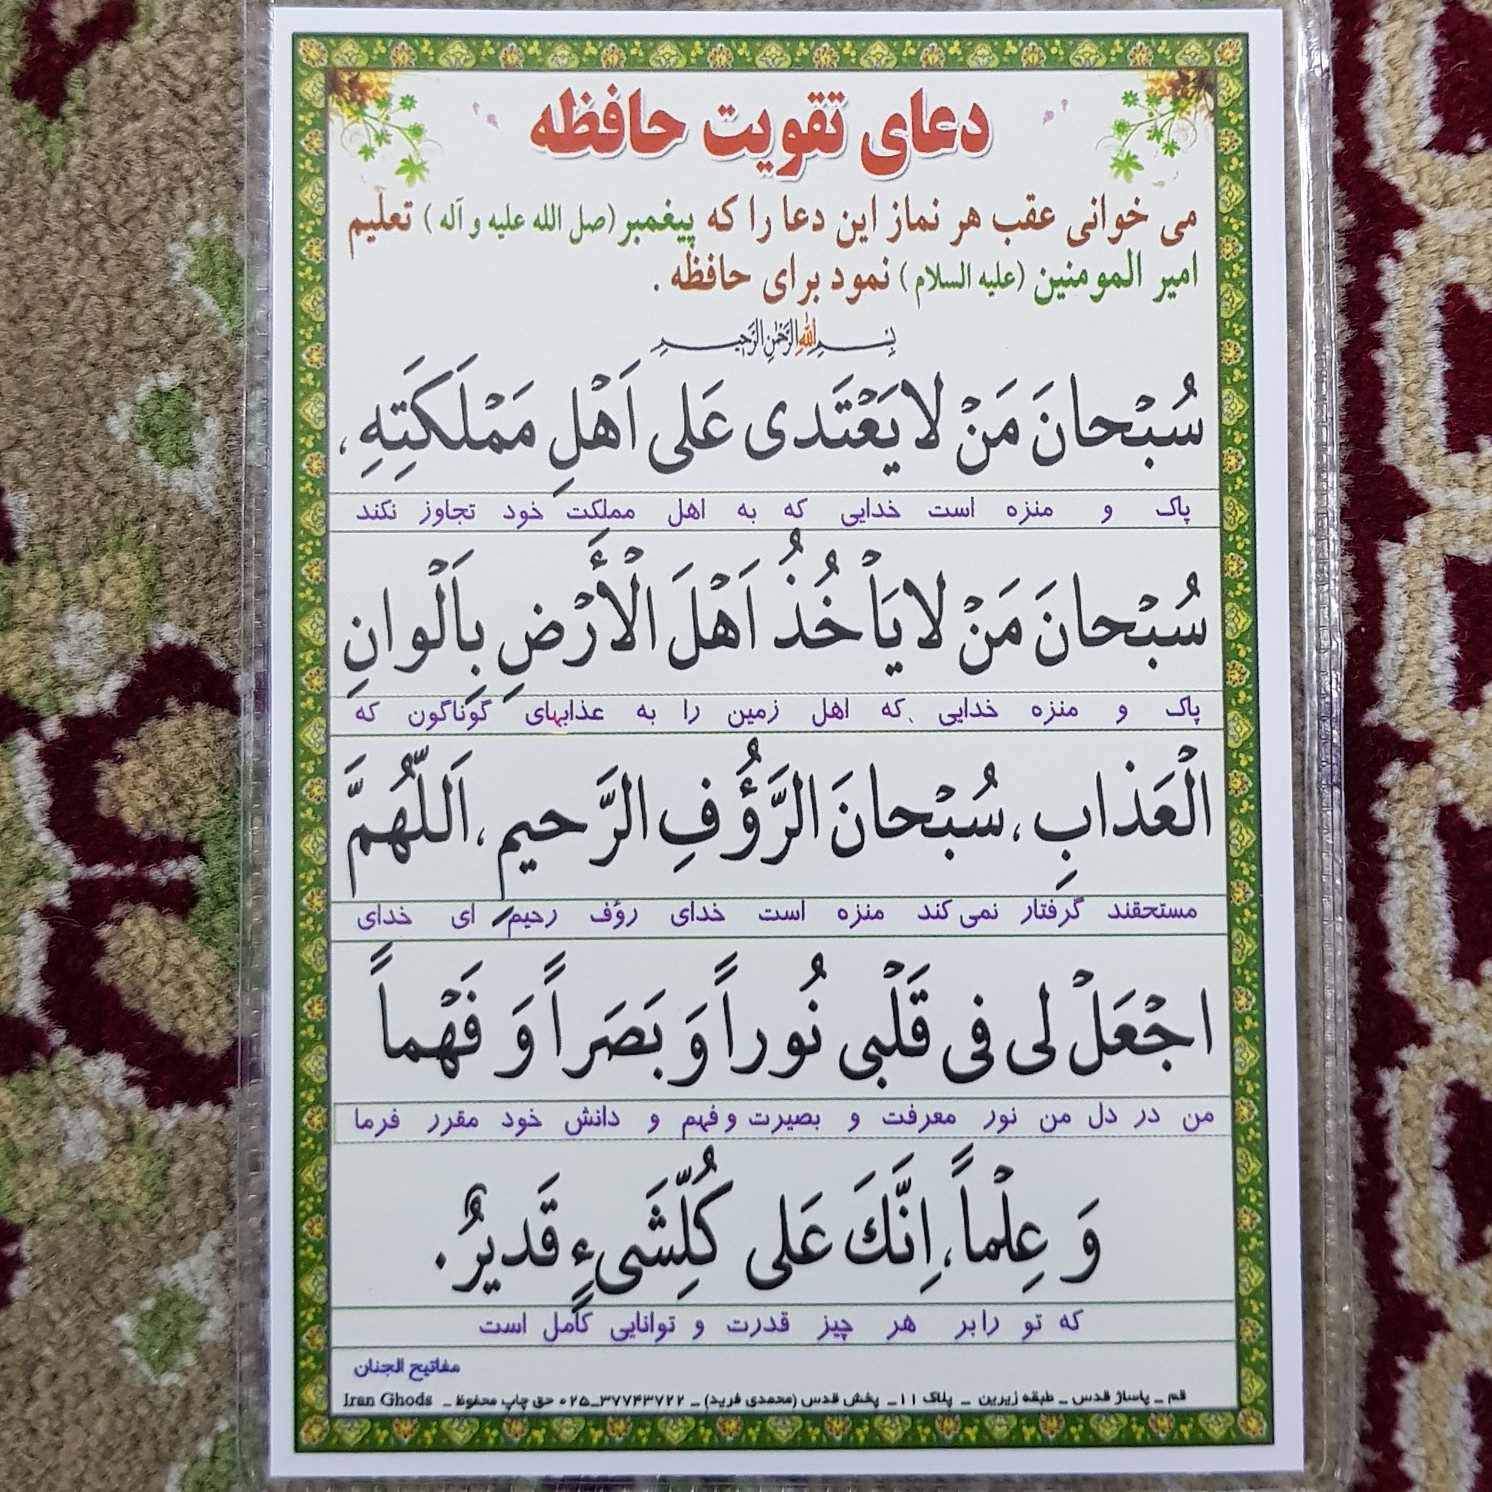 دعای تقویت حافظه
می خوانی عقب هر نماز این دعا را که پیغمبر (صل الله علیه و آله) تعلیم
امیر المومنین (علیه السلام) نمود برای حافظه .
بِسْمِ اللهِ الرَّحْمٰنِ الرَّحِيمِ
سُبْحانَ مَنْ لایَعْتَدی عَلی اَهْلِ مَمْلَكَتِهِ،
پاک و منزه است خدایی که به اهل مملکت خود تجاوز نکند
سُبْحانَ مَنْ لایَاْخُذُ اَهْلَ الْأَرْضِ بِاَلْوانِ
پاک و منزه خدایی که اهل زمین را به عذابهای گوناگون که
الْعَذابِ، سُبْحانَ الرَّؤُفِ الرَّحیمِ، اَللّهُمَّ
مستحقند گرفتار نمی کند منزه است خدای رؤف رحیم ای خدای
اجْعَلْ لی فی قَلْبی نُوراً وَ بَصَراً وَ فَهْماً
من در دل من نور معرفت و بصیرت و فهم و دانش خود مقرر فرما
وَ عِلْماً، اِنَّكَ عَلی كُلِّشَیءٍ قَدیرٌ.
که تو رابر هر چیز قدرت و توانایی کامل است
مفاتیح الجنان
قم _ پاساژ قدس _ طبقه زیرین _ پلاک ۱۱_ پخش قدس (محمدی فرید) _ ۳۷۷۴۳۷۲۲_۰۲۵ حق چاپ محفوظ _ Iran Ghods